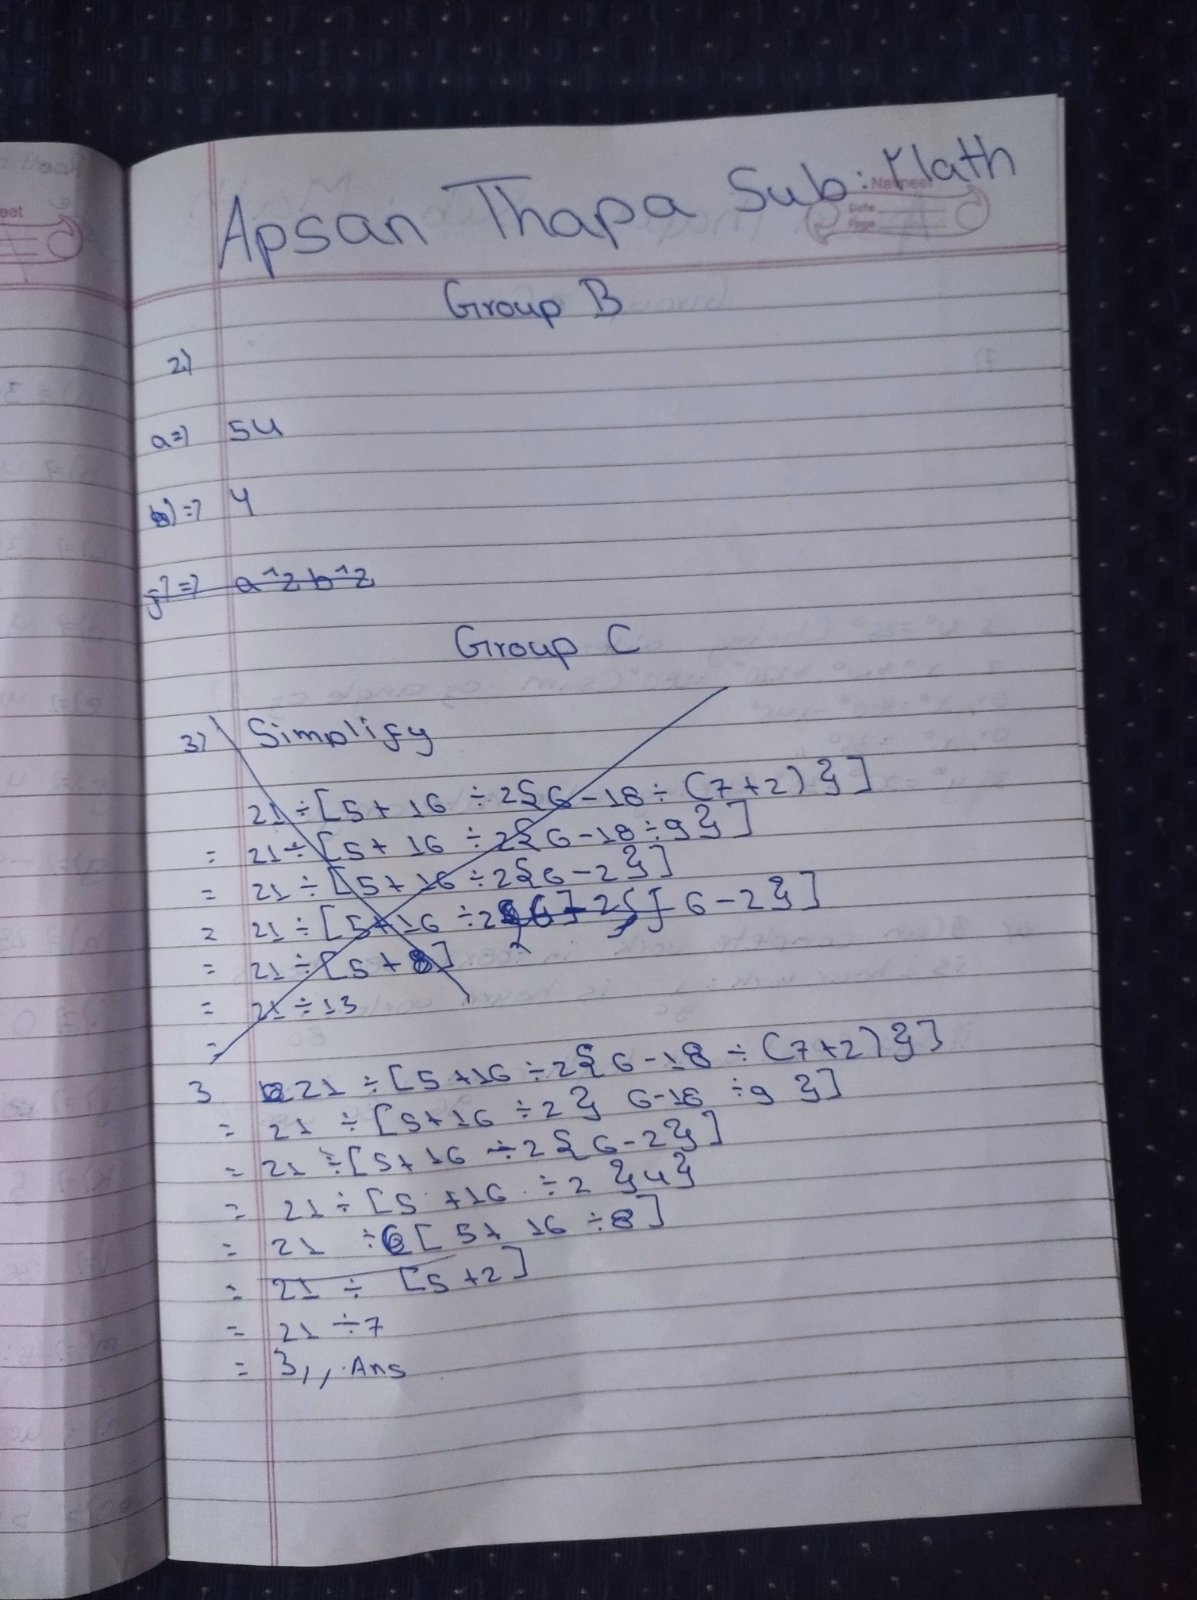 Apsan Thapa Sub: Math
Navneet
Date
Page
Group B
2)
a=) 54
b)=) 4
g)=) a^2 b^2
Group C
3) Simplify
21÷[5+16÷2{6-18÷(7+2)}]
= 21÷[5+16÷2{6-18÷9}]
= 21÷[5+16÷2{6-2}]
= 21÷[5+16÷2 6-2}]
= 21÷[5+8]
= 21÷13
=
3 21÷[5+16÷2{6-18÷(7+2)}]
= 21÷[5+16÷2} 6-18÷9}]
= 21÷[5+16÷2{6-2}]
= 21÷[5+16÷2}4}
= 21÷[5+16÷8]
= 21÷[5+2]
= 21÷7
= 3,,.Ans